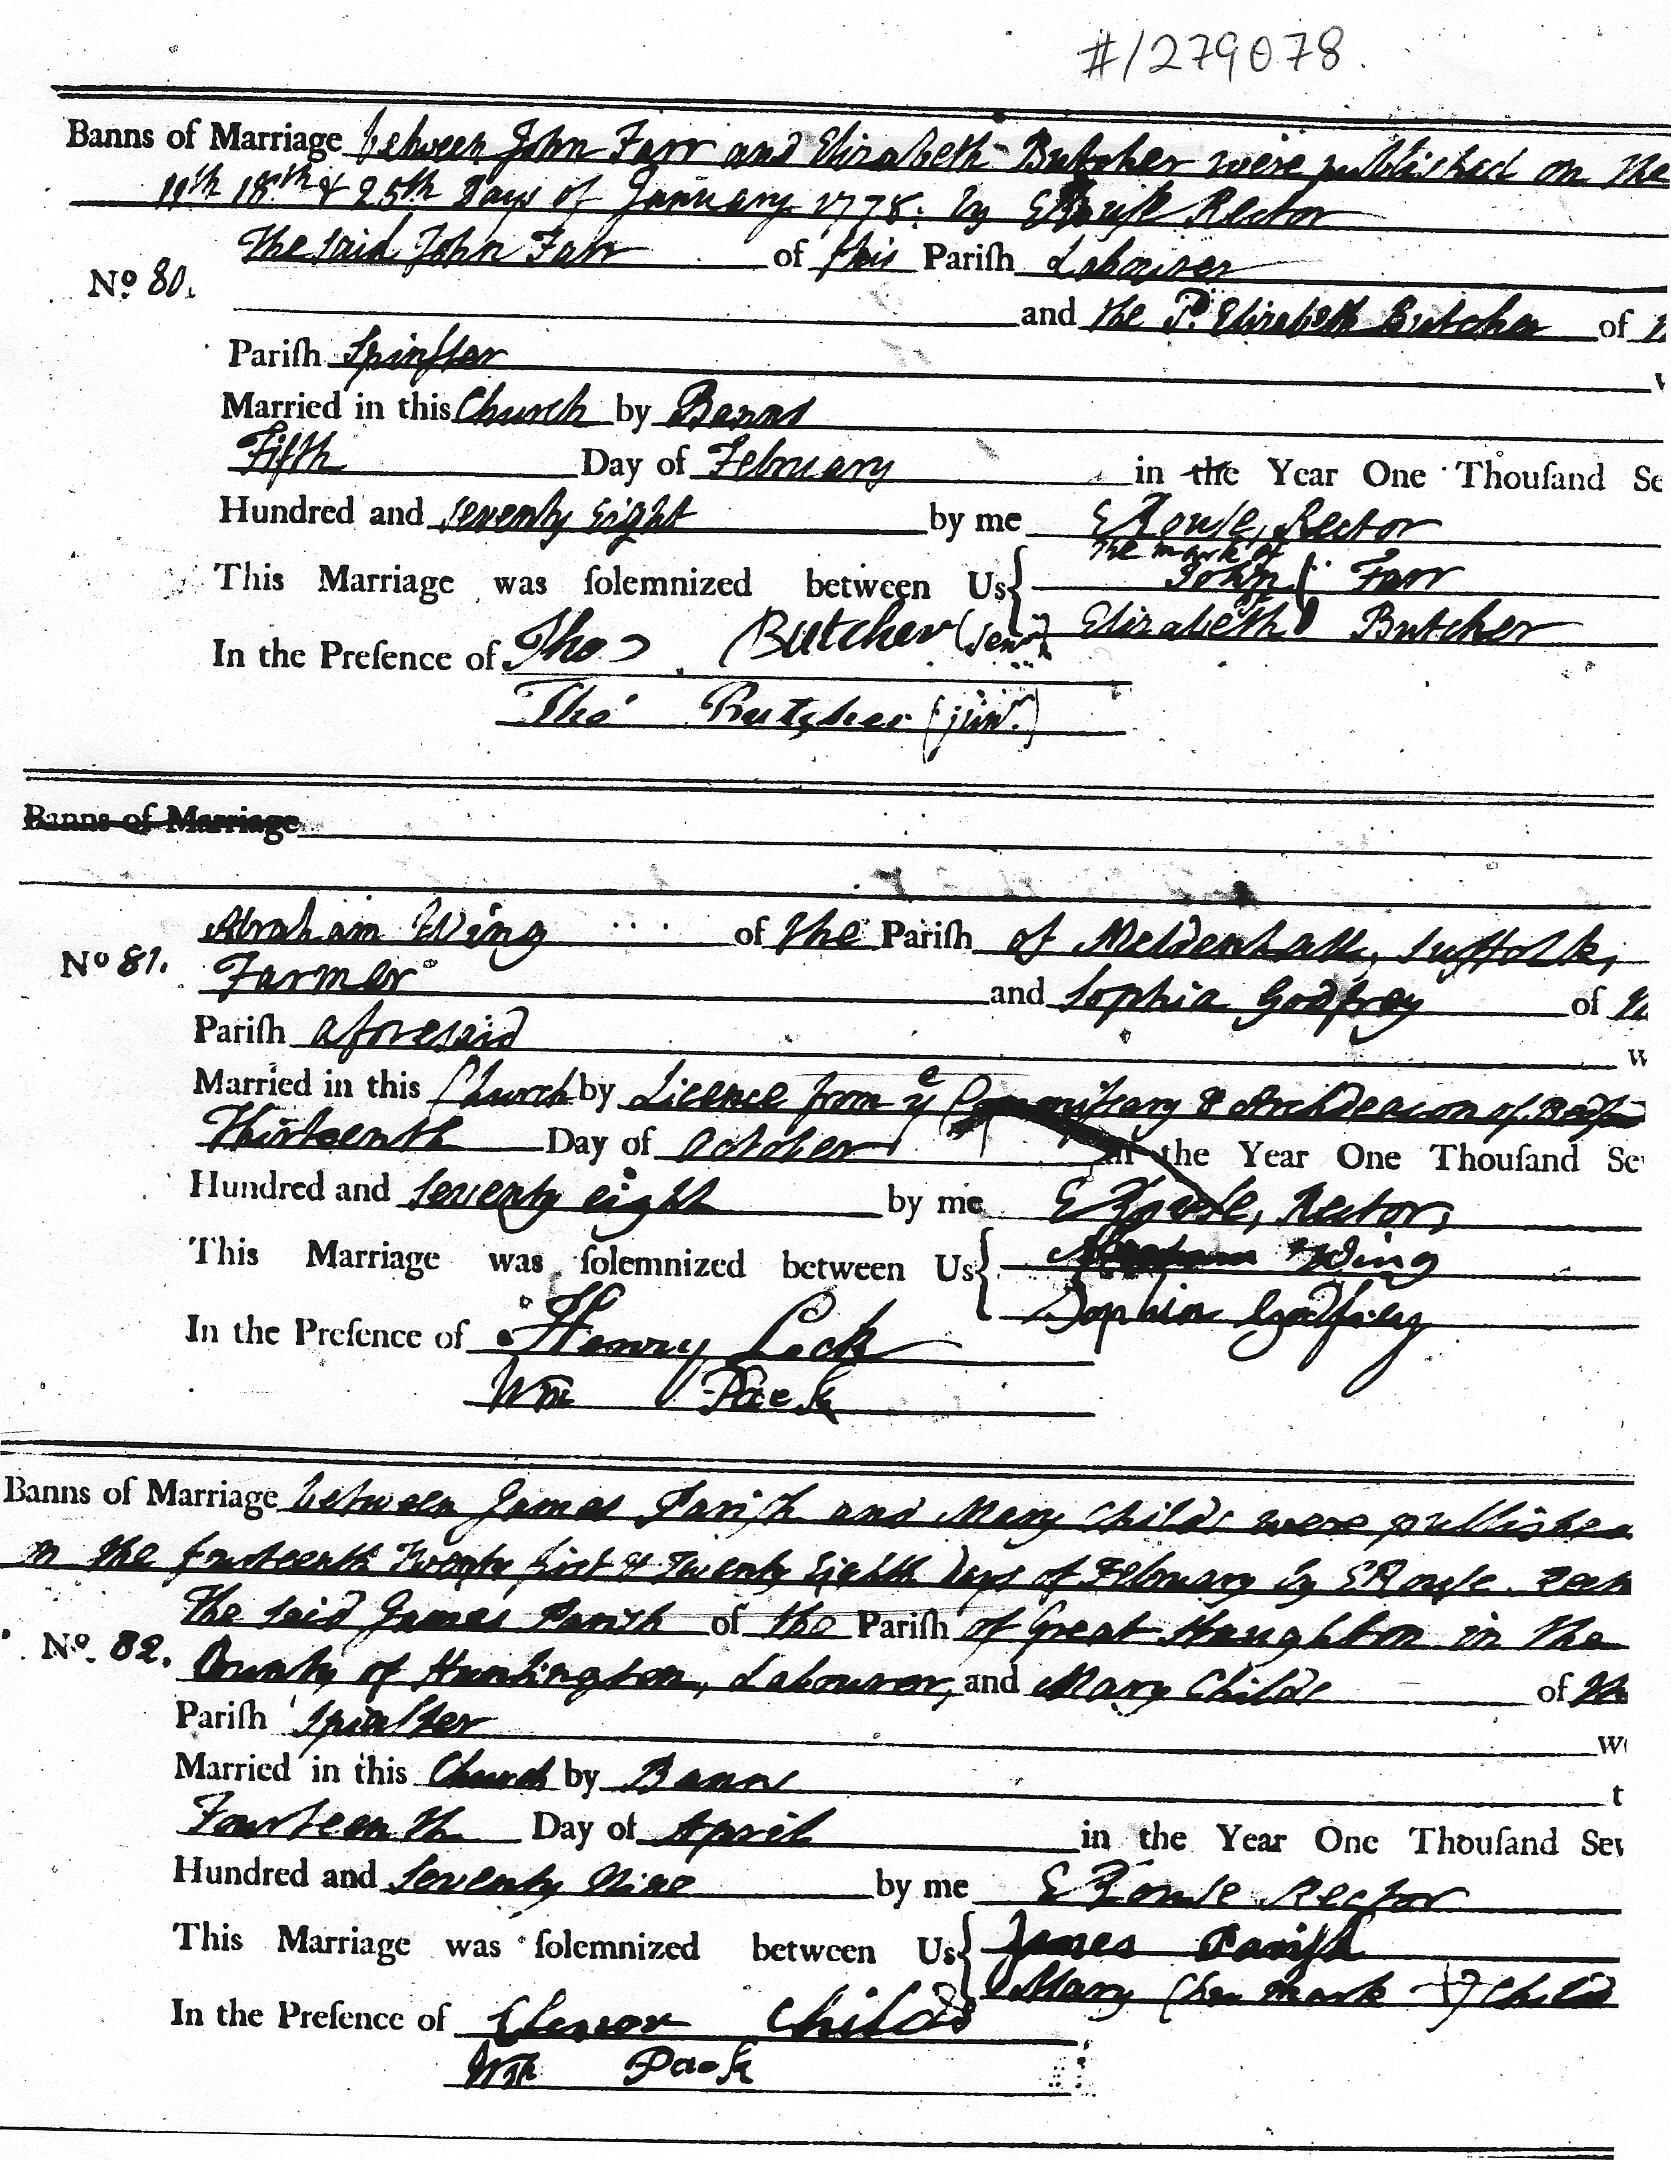 #1279078.
Banns of Marriage between John Farr and Elizabeth Butcher were published on the
11th 18th & 25th Days of January 1778. by E Rouse Rector
The said John Farr of this Pariſh Labourer
No 80.
and the Sd. Elizabeth Butcher of
Pariſh Spinſter
Married in this Church by Banns
Fifth Day of February in the Year One Thouſand Se
Hundred and seventy Eight by me E Rouse, Rector
The mark of
This Marriage was ſolemnized between Us John Farr
Elizabeth Butcher
In the Preſence of Thos Butcher (senr)
Tho Butcher (junr.)
Banns of Marriage
Abraham Wing of the Pariſh of Meldenhall, Suffolk,
No 81. Farmer and Sophia Godfrey of
Pariſh aforesaid w
Married in this Church by Licence from ye Commiſsary & Archdeacon of
Thirteenth Day of October in the Year One Thouſand Se
Hundred and seventy eight by me E Rouse, Rector,
This Marriage was ſolemnized between Us Abraham Wing
Sophia Godfrey
In the Preſence of Henry Lock
Wm Pack
Banns of Marriage between James Pariſh and Mary Childs were published
on the fourteenth Twenty first & Twenty Eighth Days of February by E Rouse
The said James Parish of the Pariſh of Great Haughton in the
No. 82. County of Huntington, Labourer, and Mary Childs of
Pariſh Spinſter
Married in this Church by Banns t
Fourteenth Day of April in the Year One Thouſand Sev
Hundred and seventy Nine by me E Rouse Rector
This Marriage was ſolemnized between Us James Pariſh
Mary (her mark +) Child
In the Preſence of Elenor Childs
Wm Pack